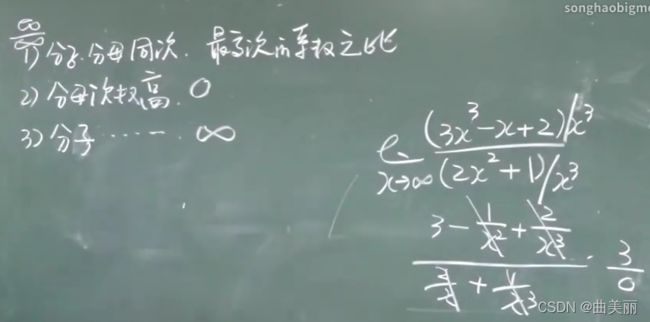 songhaobigme
∞/∞
1) 分子.分母同次. 最高次的系数之比
2) 分母次数高. 0
3) 分子 ······ ∞
lim x→∞ (3x³-x+2)/x³
(2x²+1)/x³
3 - 1/x² + 2/x³
2/x + 1/x³
3/0
CSDN @曲美丽